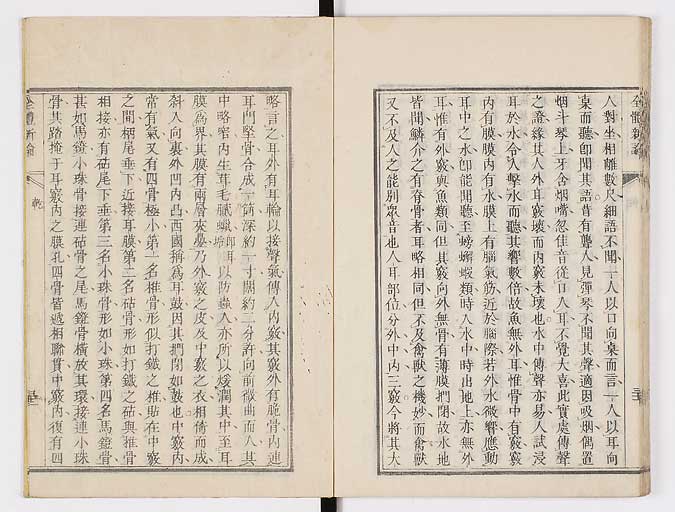 人對坐相離數尺細語不聞一人以口向桌而言一人以耳向
桌而聽卽聞其語昔有聾人見彈琴不聞其聲適因吸烟偶置
烟斗琴上牙含烟嘴忽佳音從口入耳不覺大喜此實處傳聲
之證緣其人外耳竅壞而內竅未壞也水中傳聲亦易人試浸
耳於水令人擊水而聽其響數倍故魚無外耳惟骨中有竅竅
內有膜膜內有水膜上有腦氣筋近於腦際若外水微響應動
耳中之水卽能聞聽至螃蠏蝦類時入水中時出地上亦無外
耳惟有外竅與魚類同但其竅向外無骨有薄膜捫閉故水地
皆聞鱗介之有脊骨者耳略相同但不及禽獸之機妙而禽獸
又不及人之能別眾音也人耳部位分外中內三竅今將其大
全體新論
略言之耳外有耳輪以接聲氣傳入內竅其竅外有脆骨內連
耳門堅骨合成一筒深約一寸闊約二分許向前微曲而入其
中略窄內生耳毛膩蠟卽耳以防蟲入亦所以滋潤其中至耳
膜為界其膜有兩層夾疊乃外竅之皮及中竅之衣相倚而成
斜入向裏外凹內凸西國稱為耳鼓因其捫閉如鼓也中竅內
常有氣又有四骨極小第一名椎骨形似打鐵之椎貼在中竅
之間柄尾垂下近接耳膜第二名砧骨形如打鐵之砧與椎骨
相接亦有砧尾下垂第三名小珠骨形如小珠第四名馬鐙骨
甚如馬鐙小珠骨接連砧骨之尾馬鐙骨橫放其環接連小珠
骨其踏掩于耳竅內之膜孔四骨皆遞相聯貫中竅內復有四
全體新論
乾